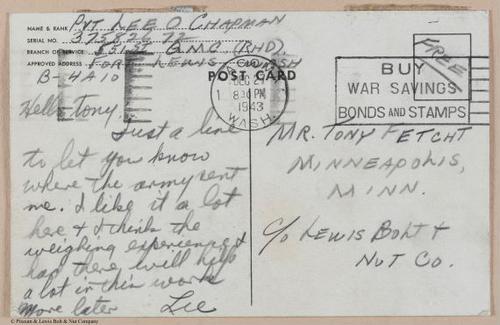 NAME & RANK PVT LEE O CHAPMAN
SERIAL NO.
BRANCH OF SERVICE Q.M.C. (RHD).
APPROVED ADDRESS FORT LEWIS WASH
B-4A10
FREE
POST CARD
DEC 27
1 8 30 PM
1943
WASH.
BUY
WAR SAVINGS
BONDS AND STAMPS
Hello Tony.
Just a line
to let you know
where the army sent
me. I like it a lot
here & I think the
weighing experience I
had there will help
a lot in this work
More later Lee
MR. TONY FETCHT
MINNEAPOLIS,
MINN.
C/O LEWIS BOLT &
NUT CO.
© Pioasan & Lewis Bolt & Nut Company